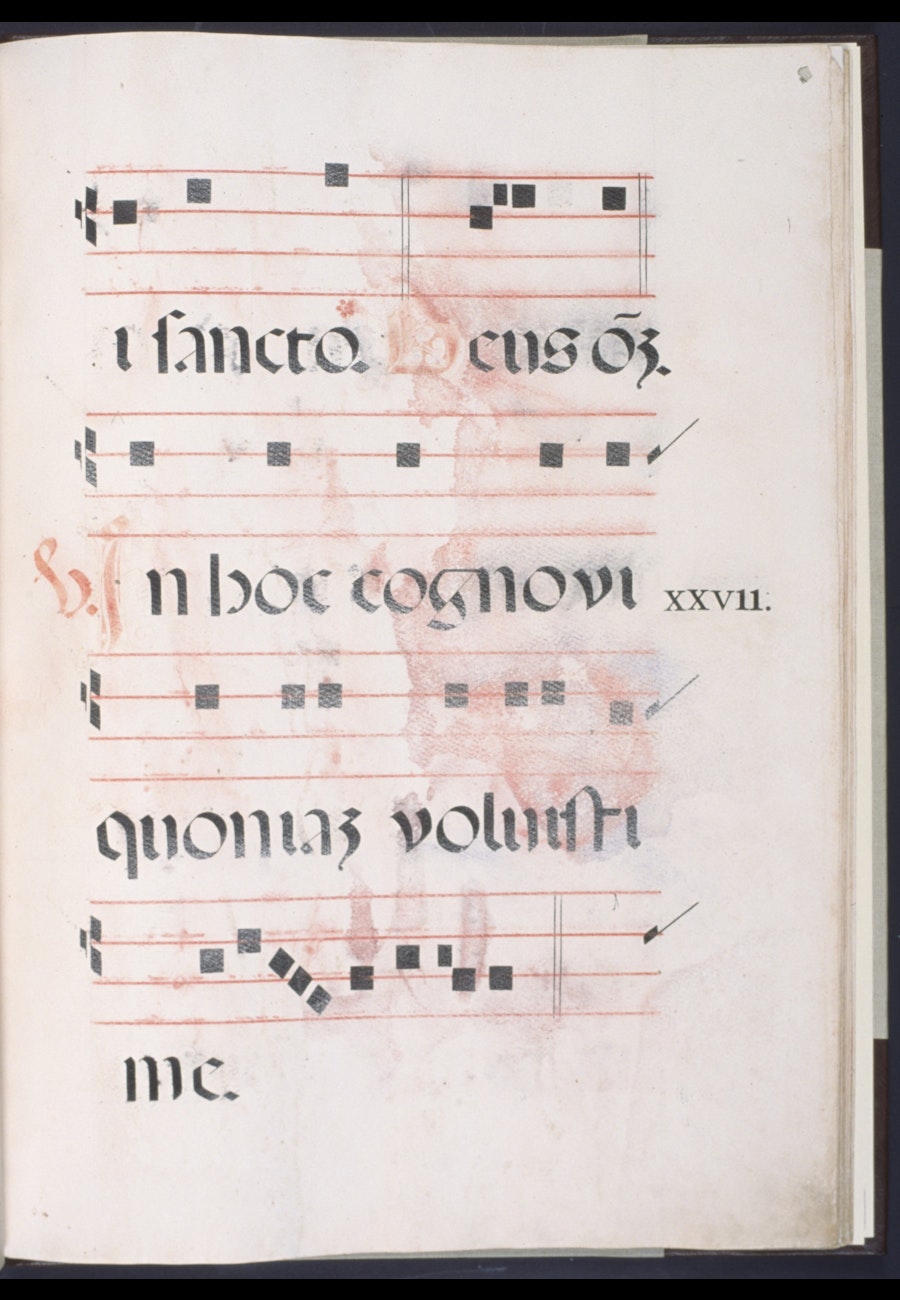 ı sancto. Deus oz̄.
℣. In hoc cognovi xxvii.
quoniaz voluisti
me.